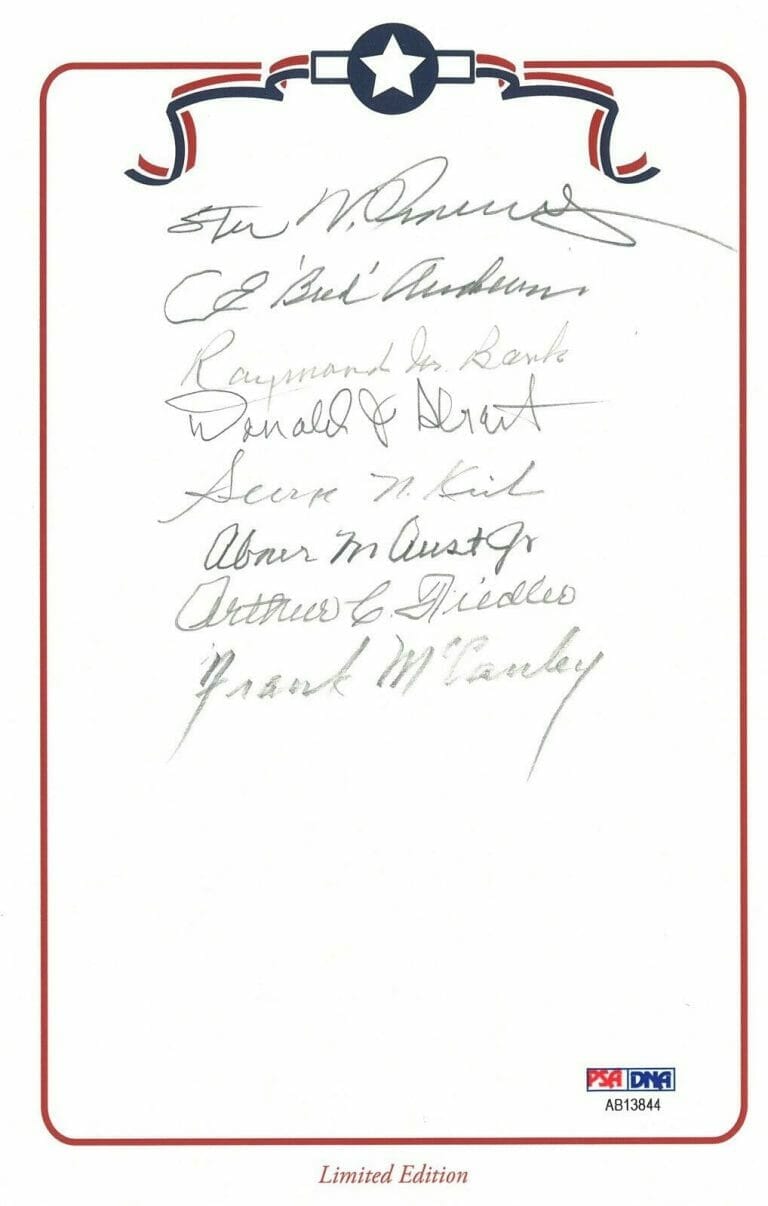 C E 'Bud' Anderson
Raymond M. Bank
Donald J Strait
George N. Kirk
Abner M Aust Jr
Arthur C. Fiedler
Frank McCauley
PSA DNA
AB13844
Limited Edition